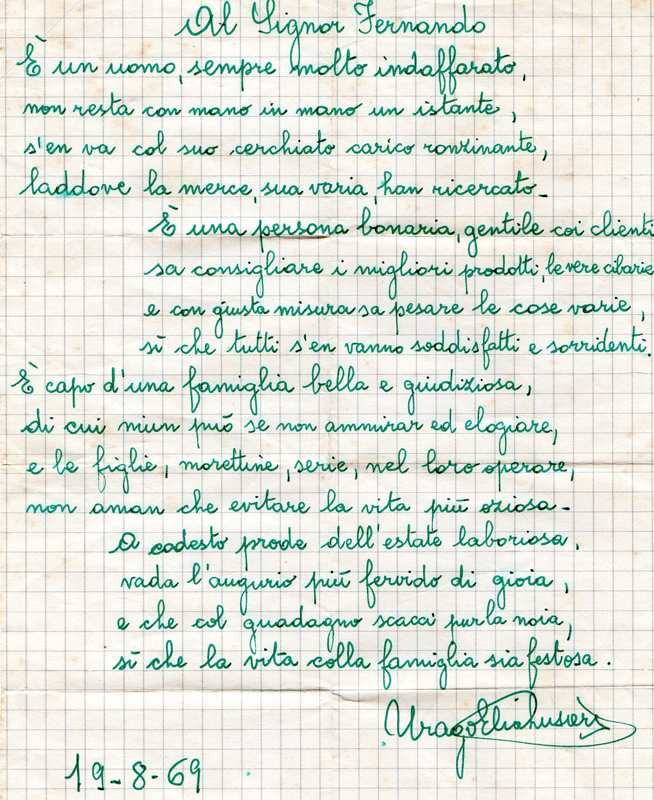 Al Signor Fernando
È un uomo, sempre molto indaffarato,
non resta con mano in mano un istante,
s'en va col suo cerchiato carico ronzinante,
laddove la merce, sua varia, han ricercato_
È una persona bonaria, gentile coi clienti
sa consigliare i migliori prodotti, le vere cibarie
e con giusta misura sa pesare le cose varie,
sì che tutti s'en vanno soddisfatti e sorridenti.
È capo d'una famiglia bella e giudiziosa,
di cui niun può se non ammirar ed elogiare,
e le figlie, morettine, serie, nel loro operare,
non aman che evitare la vita più oziosa_
A codesto prode dell'estate laboriosa,
vada l'augurio più fervido di gioia,
e che col guadagno scacci pur la noia,
sì che la vita colla famiglia sia festosa.
19-8-69